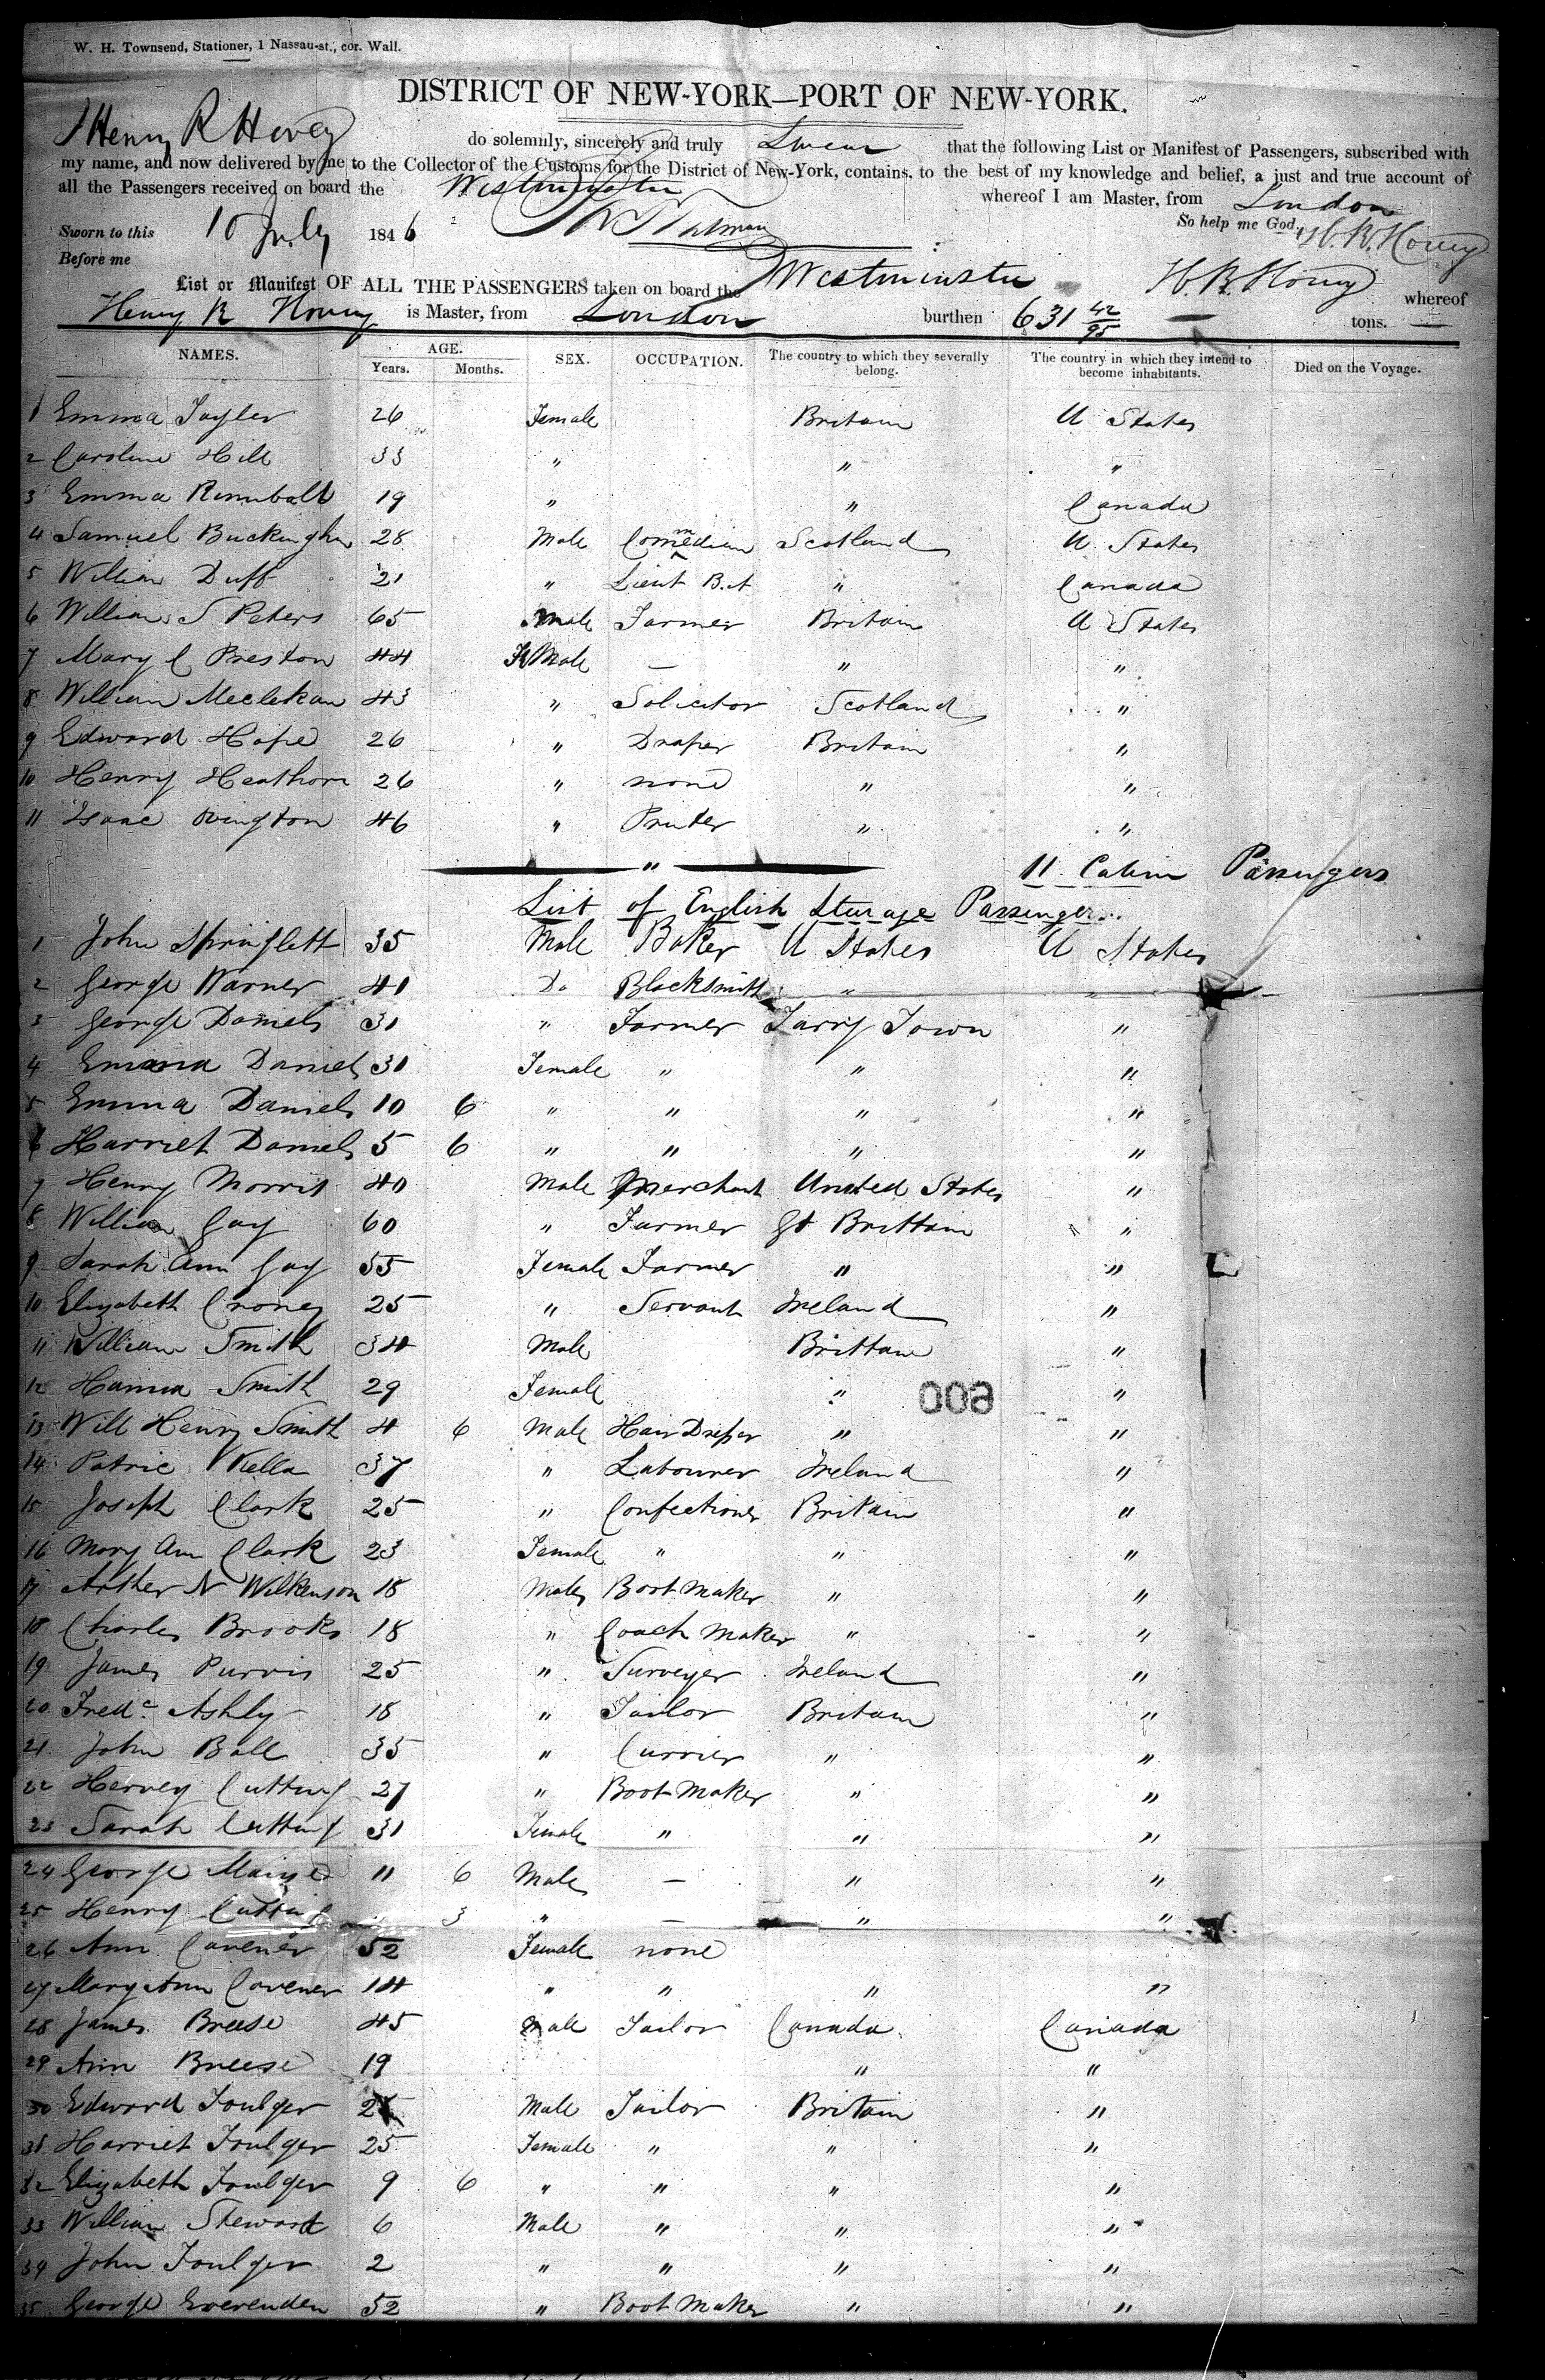 W. H. Townsend, Stationer, 1 Nassau-st., cor. Wall.
DISTRICT OF NEW-YORK—PORT OF NEW-YORK.
I Henry R Hovey do solemnly, sincerely and truly Swear that the following List or Manifest of Passengers, subscribed with
my name, and now delivered by me to the Collector of the Customs for the District of New-York, contains, to the best of my knowledge and belief, a just and true account of
all the Passengers received on board the Westminster whereof I am Master, from London
Sworn to this 10 July 1846 So help me God. H. R. Hovey
Before me
List or Manifest OF ALL THE PASSENGERS taken on board the Westminster H. R. Hovey whereof
Henry R Hovey is Master, from London burthen 631 42/95 tons.
NAMES. AGE. Years. Months. SEX. OCCUPATION. The country to which they severally belong. The country in which they intend to become inhabitants. Died on the Voyage.
1 Emma Tayler 26 Female Britain U States
2 Caroline Hill 33 " " "
3 Emma Rumball 19 " " Canada
4 Samuel Buckingham 28 Male Commedian Scotland U. States
5 William Duff 21 " Lieut B.A " Canada
6 William S Peters 65 Male Farmer Britain U States
7 Mary C Preston 44 FeMale — " "
8 William 43 " Solicitor Scotland "
9 Edward Hope 26 " Draper Britain "
10 Henry Heathorn 26 " none " "
11 Isaac Ovington 46 " Printer " "
" 11 Cabin Passengers
List of English Sturage Passengers
1 John Springlett 35 Male Baker U States U States
2 George Warner 41 Do Blacksmith " "
3 George Daniels 31 " Farmer Tarry Town "
4 Emma Daniels 31 Female " " "
5 Emma Daniels 10 6 " " " "
6 Harriet Daniels 5 6 " " " "
7 Henry Morris 40 Male Merchant United States "
8 William Gay 60 " Farmer Gt Brittain "
9 Sarah Ann Gay 55 Female Farmer " "
10 Elizabeth Croney 25 " Servant Ireland "
11 William Smith 34 Male Brittain "
12 Hanna Smith 29 Female " 009 "
13 Will Henry Smith 4 6 Male Hair Dresser " "
14 Patric Kella 37 " Labourer Ireland "
15 Joseph Clark 25 " Confectioner Britain "
16 Mary Ann Clark 23 Female " " "
17 Arther N Wilkenson 18 Male Boot Maker " "
18 Charles Brooks 18 " Coach Maker " "
19 James Purvis 25 " Surveyer Ireland "
20 Fredc Ashly 18 " Tailor Britain "
21 John Ball 35 " Currier " "
22 Hervey Cutting 27 " Boot Maker " "
23 Sarah Cutting 31 Female " " "
24 George 11 6 Male — " "
25 Henry Cutting 3 " — " "
26 Ann Cavener 52 Female none
27 Mary Ann Cavener 14 " " " "
28 James Breese 45 Male Tailor Canada Canada
29 Ann Breese 19 " "
30 Edward Foulger Male Tailor Britain "
31 Harriet Foulger 25 Female " " "
32 Elizabeth Foulger 9 6 " " " "
33 William Stewart 6 Male " " "
34 John Foulger 2 " " " "
35 George Everenden 52 " Boot Maker " "